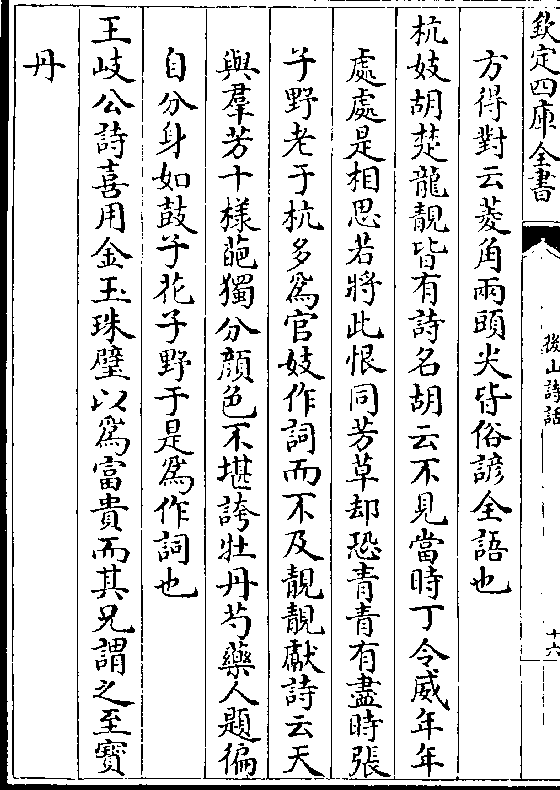 欽定四庫全書
後山詩話
十六
方得對云菱角兩頭尖皆俗諺全語也
杭妓胡楚龍靚皆有詩名胡云不見當時丁令威年年
處處是相思若將此恨同芳草却恐青青有盡時張
子野老于杭多為官妓作詞而不及靚靚獻詩云天
與羣芳十樣葩獨分顔色不堪誇牡丹芍藥人題徧
自分身如鼓子花子野于是為作詞也
王岐公詩喜用金玉珠璧以為富貴而其兄謂之至寳
丹